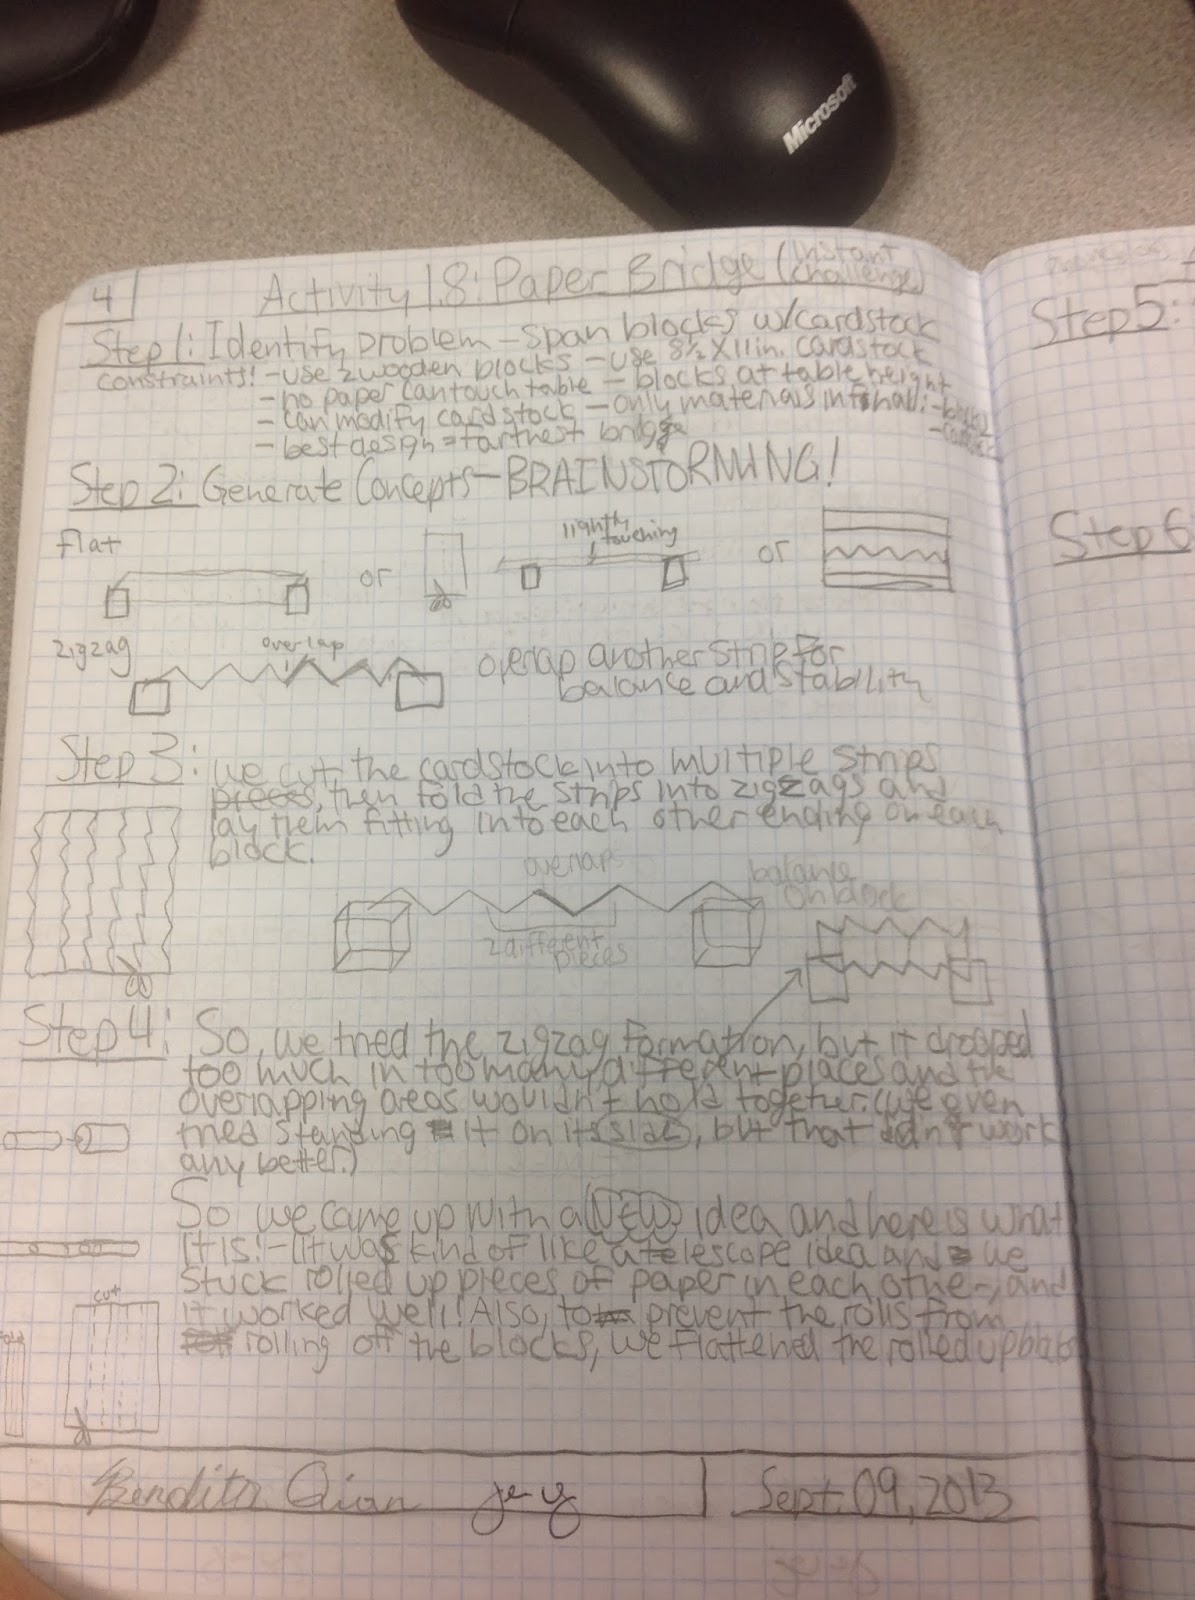 Microsoft
4
Activity 1.8: Paper Bridge (Instant Challenge)
Step 1: Identify problem - span blocks w/cardstock
constraints: - use 2 wooden blocks - use 8½ X 11 in. cardstock
- no paper can touch table - blocks at table height
- can modify cardstock - only materials
- best design = farthest bridge
Step 2: Generate Concepts - BRAINSTORMING!
flat
or
lightly touching
or
zigzag
overlap
overlap another strip for
balance and stability
Step 3: we cut the cardstock into multiple strips
pieces, then fold the strips into zigzags and
lay them fitting into each other ending on each
block.
overlaps
balance
on block
2 different
pieces
Step 4: So, we tried the zigzag formation, but it drooped
too much in too many different places and the
overlapping areas wouldn't hold together. (we even
tried standing it on its side, but that didn't work
any better.)
So we came up with a NEW idea and here is what
it is: - (it was kind of like a telescope idea and we
stuck rolled up pieces of paper in each other, and
it worked well! Also, to prevent the rolls from
rolling off the blocks, we flattened the rolled up
cut
Bendita Qian
Sept. 09, 2013
Step 5:
Step 6: